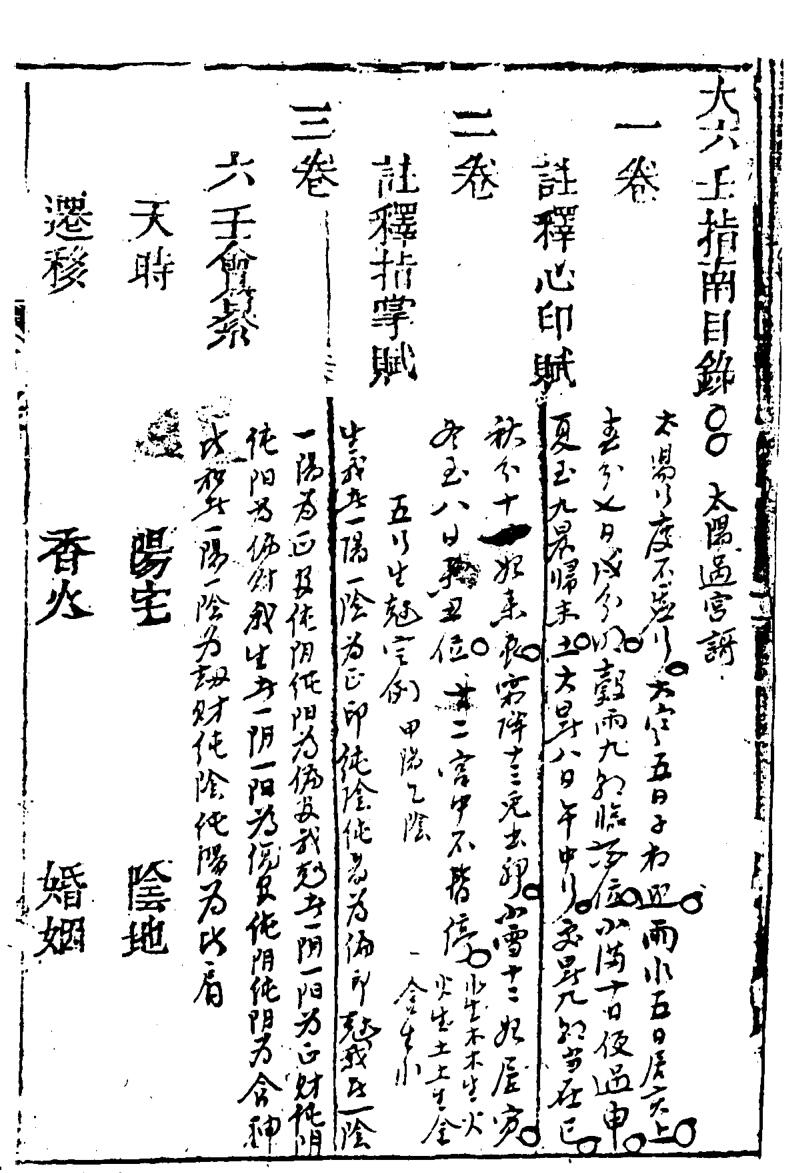 大六壬指南目錄
一卷
註釋心印賦
二卷
註釋指掌賦
三卷
六壬會纂
天時 陽宅 陰地
遷移 香火 婚姻
太陽過宮訶
太陽行度不虛行 大寒五日子相迎 雨水五日居亥上
春分七日戌分明 穀雨九朝臨酉位 小滿十日便過申
夏至九晨歸未土 大暑八日午中行 處暑九朝當在巳
秋分十 霜降十三兎出卯 小雪十二 居寅
冬至八日 丑位 十二宮中不暫停
水生木木生火
火生土土生金
金生水
五行生尅定例 甲陽乙陰
生我者一陽一陰為正印純陰純陽為偏印尅我者一陰
一陽為正 純阴純阳為偏 我尅者一阴一阳為正財純阴
純阳為偏財我生者一阴一阳為傷 純阴純阳為食神
比和者一陽一陰為刼財純陰純陽為比肩